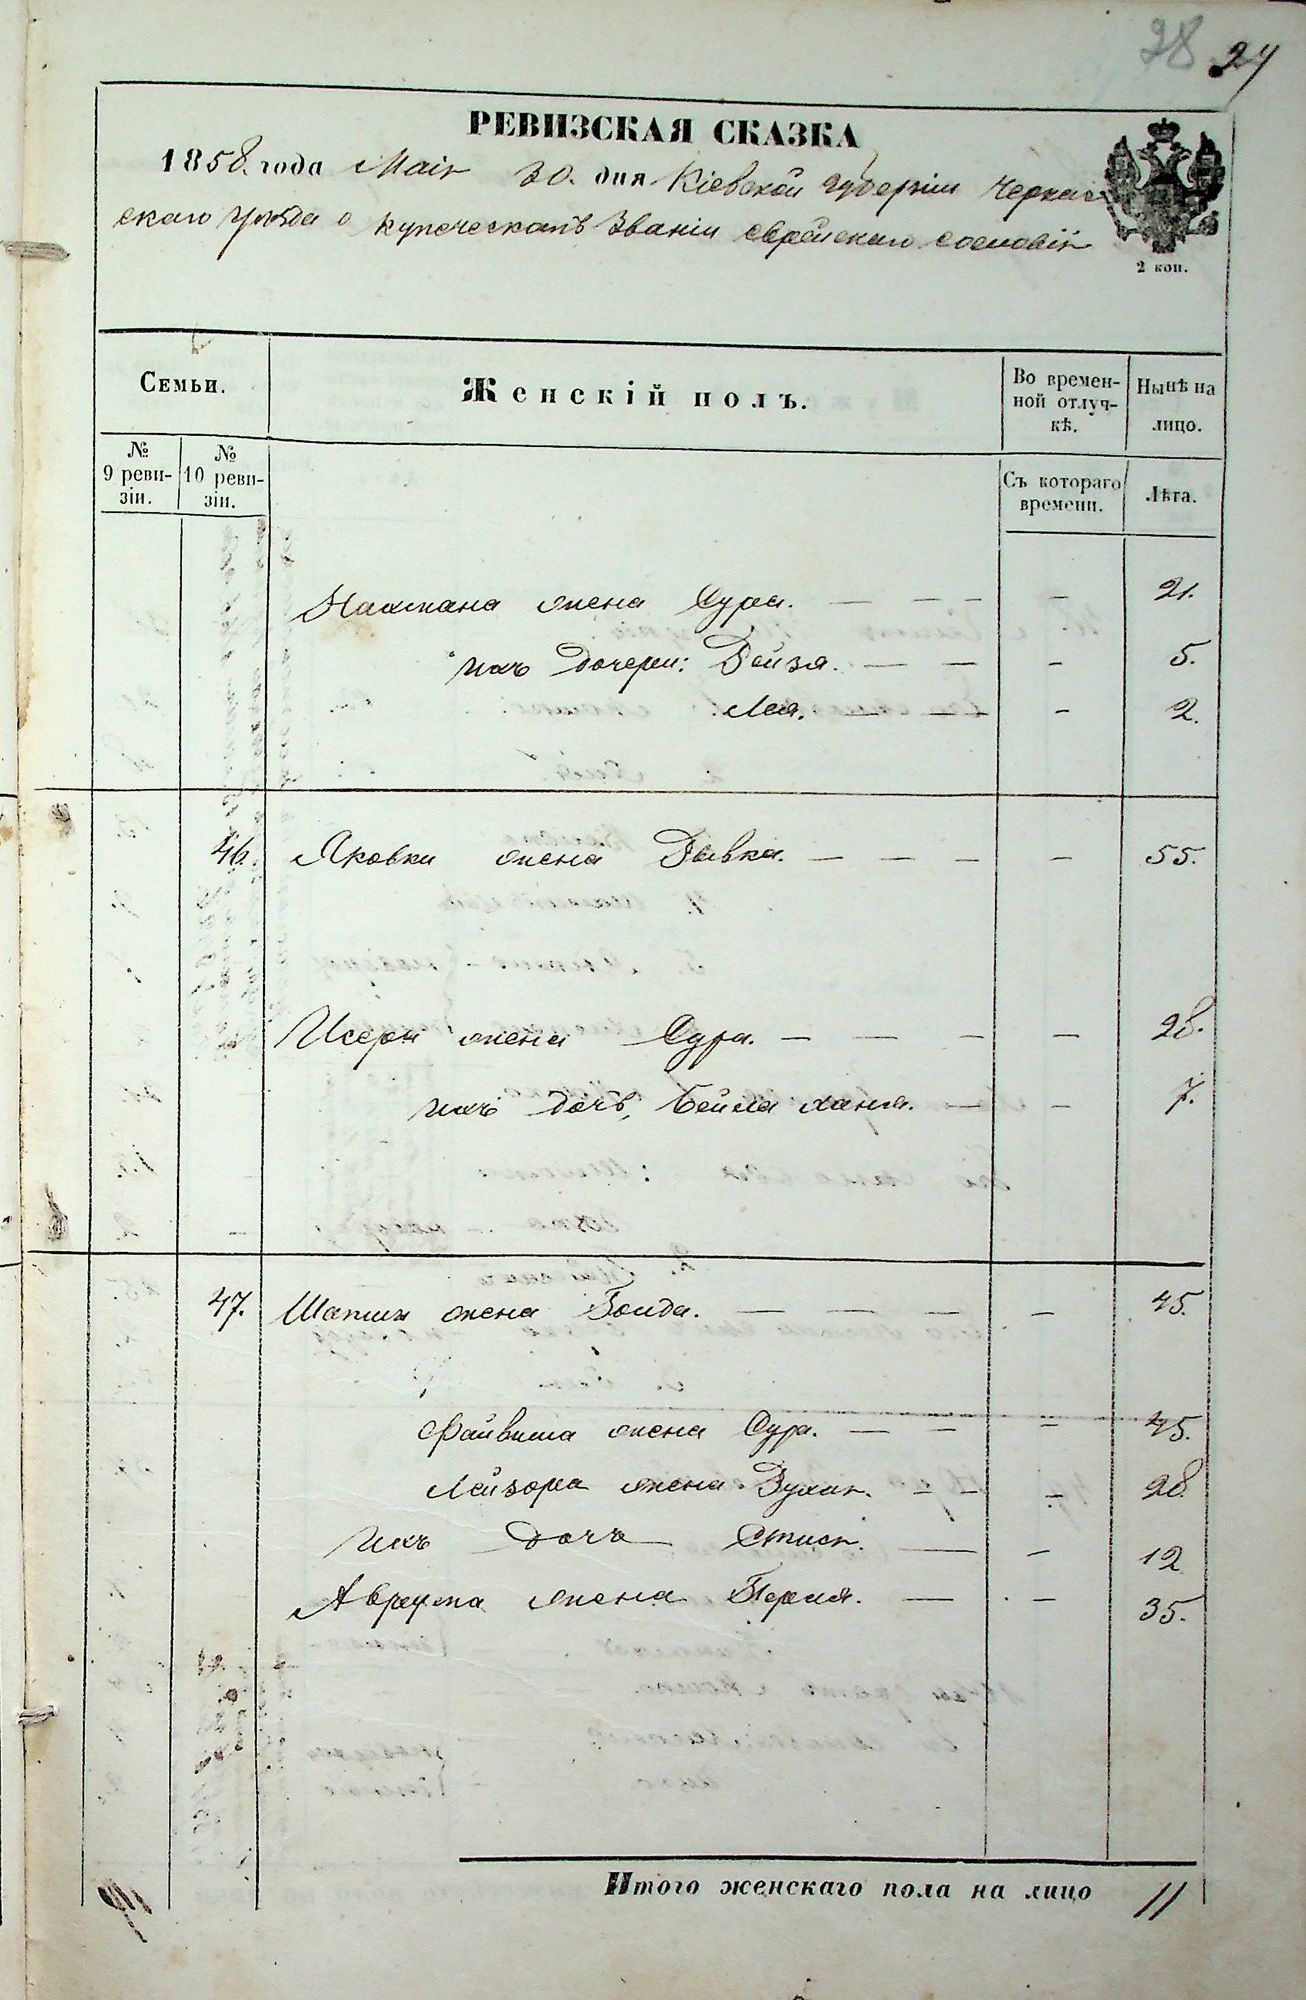 28 24
РЕВИЗСКАЯ СКАЗКА
1858. года Маія 30. дня Кіевской губерніи Черкас
скаго уѣзда о купеческомъ званіи еврейскаго сословія
2 коп.
Семьи.
Женскій полъ.
Во времен-
ной отлуч-
кѣ.
Нынѣ на
лицо.
№
9 реви-
зіи.
№
10 реви-
зіи.
Съ котораго
времени.
Лѣта.
Нахмана жена Сура. — — — — 21.
ихъ дочери: Бейзя. — — — 5.
Лея. — — — 2.
46. Яковки жена Рывка. — — — — — 55.
Исеря жена Сура. — — — — — 28.
ихъ дочь, Бейла ханя. — — 7.
47. Шапши жена Зоида. — — — — — 45.
Файвиша жена Сура. — — — 45.
Лейзора жена Зухля. — — — 28.
Ихъ дочь Стися. — — 12
Аврума жена Перля. — — 35.
Итого женскаго пола на лицо 11